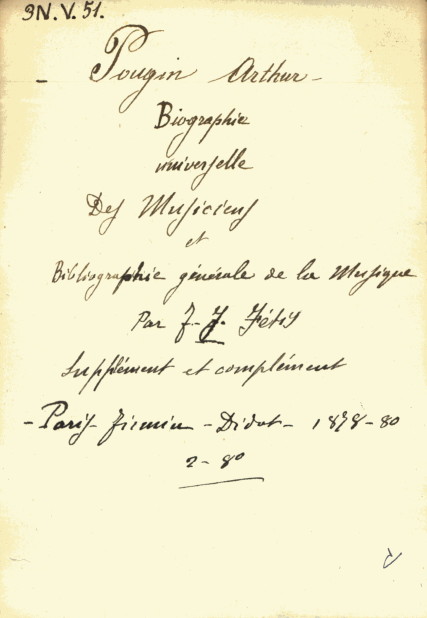 9N.V.51.
- Pougin Arthur -
Biographie
universelle
Des Musiciens
et
Bibliographie générale de la Musique
Par F.-J. Fétis
Supplément et complément
- Paris- Firmin - Didot - 1878-80
2 - 8º